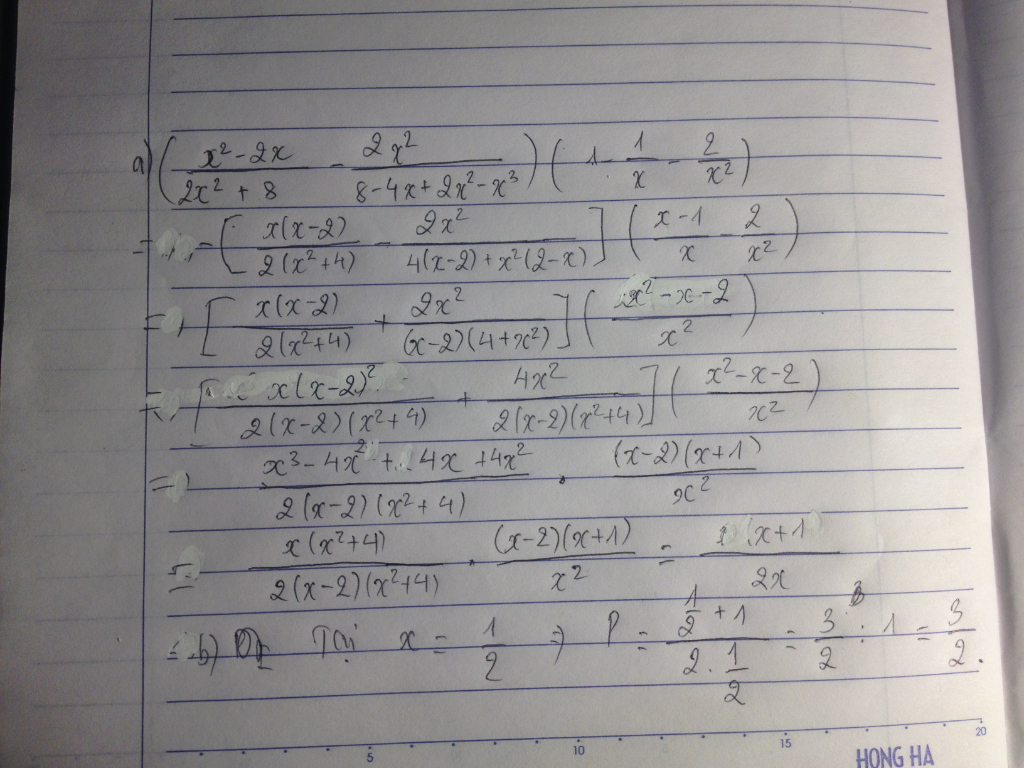 a) ( (x² - 2x)/(2x² + 8) - 2x²/(8 - 4x + 2x² - x³) ) ( 1 - 1/x - 2/x² )
= [ x(x-2)/(2(x²+4)) - 2x²/(4(x-2) + x²(2-x)) ] ( (x-1)/x - 2/x² )
= [ x(x-2)/(2(x²+4)) + 2x²/((x-2)(4+x²)) ] ( (x² - x - 2)/x² )
= [ x(x-2)²/(2(x-2)(x²+4)) + 4x²/(2(x-2)(x²+4)) ] ( (x² - x - 2)/x² )
= (x³ - 4x² + 4x + 4x²)/(2(x-2)(x²+4)) . (x-2)(x+1)/x²
= x(x²+4)/(2(x-2)(x²+4)) . (x-2)(x+1)/x² = (x+1)/2x
b) Tại x = 1/2 => P = (1/2 + 1)/(2 . 1/2) = 3/2 : 1 = 3/2 .
5 10 15 20
HONG HA